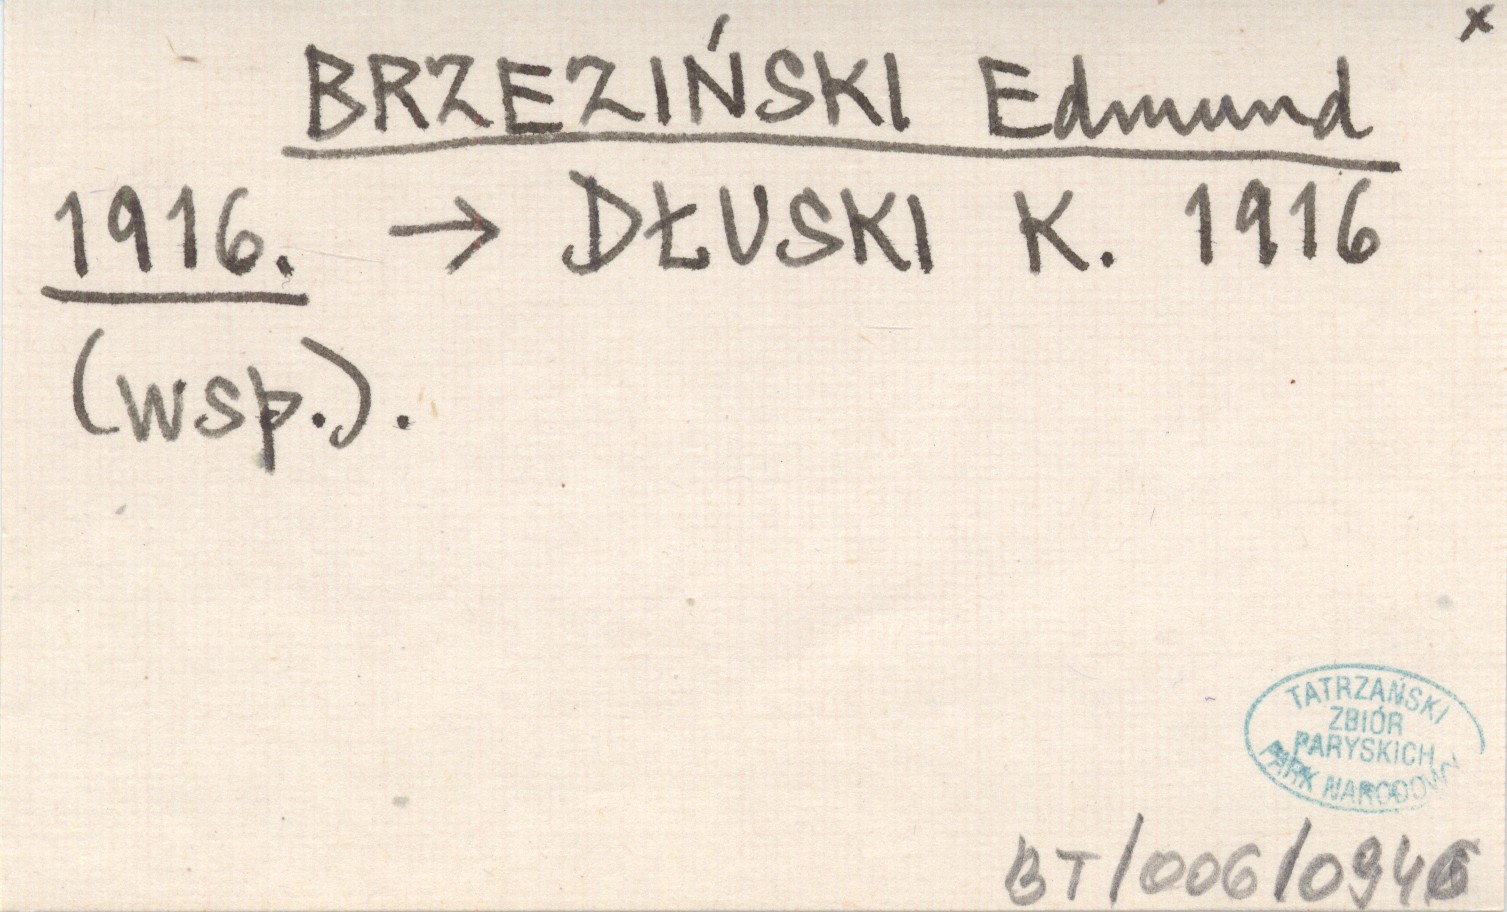 x
BRZEZIŃSKI Edmund
1916. → DŁUSKI K. 1916
(wsp.).
TATRZAŃSKI
ZBIÓR
PARYSKICH
PARK NARODOWY
BT/006/0946